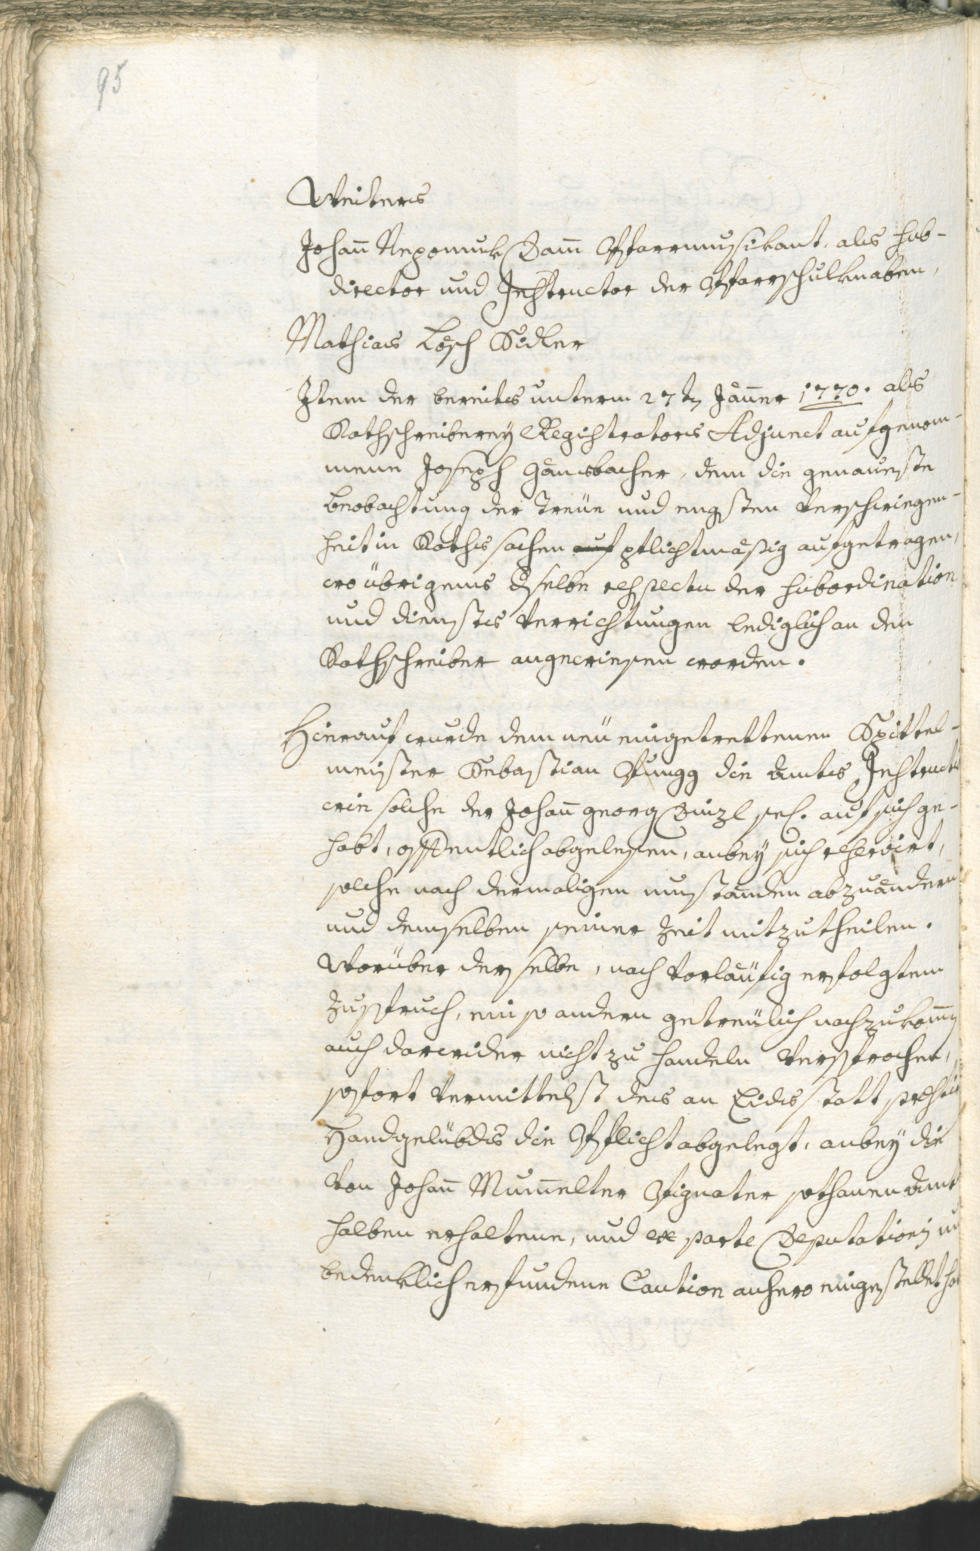 95
Weiters
Johan̄ Nepomuk Dam̄ Pfarrmusikant, als Sub-
director und Instructor der Pfarrschulknaben,
Mathias Lösch Sidler
Item der bereits unterm 27tn Jäner 1770. als
Rathschreiberey Registrators Adjunct aufgenom-
mene Joseph Gänsbacher, dem die genaueste
Beobachtung der Treüe und engsten Verschwiegen-
heit in Raths sachen auf pflichtmäßig aufgetragen,
wo übrigens dselbe respectu der Subordination
und dienstes Verrichtungen lediglich an den
Rathschreiber angewiesen worden.
Hierauf wurde dem neü eingetrettenen Spittel-
meister Sebastian Pungg die Amts Instructi
wie solche der Johan̄ Georg Dinzl sel. auf sich ge-
habt, offentlich abgelesen, anbey sich reservirt,
solche nach dermaligen umständen abzuändern
und demselben seiner Zeit mitzutheilen.
Worüber derselbe, nach Vorläufig erfolgtem
Zuspruch, ein so andern getreülich nachzukom̄n
auch darwider nicht zu handeln Versprochen,
sofort Vermittelst des an Eides statt præstir
Handgelübdes die Pflicht abgelegt, anbey die
Von Johan̄ Mum̄elter Signater sothanen Amt
halben erhaltene, und ex parte Deputationis un
bedenklich erfundene Caution anhero eingestellet ha